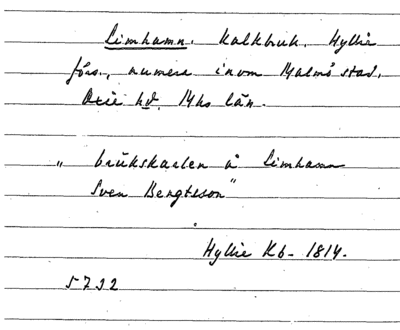 Limhamn. Kalkbruk. Hyllie
förs., numera inom Malmö stad.
Oxie hd. Mhs län.
" brukskarlen å Limhamn
Sven Bengtsson"
Hyllie Kb - 1814.
5732